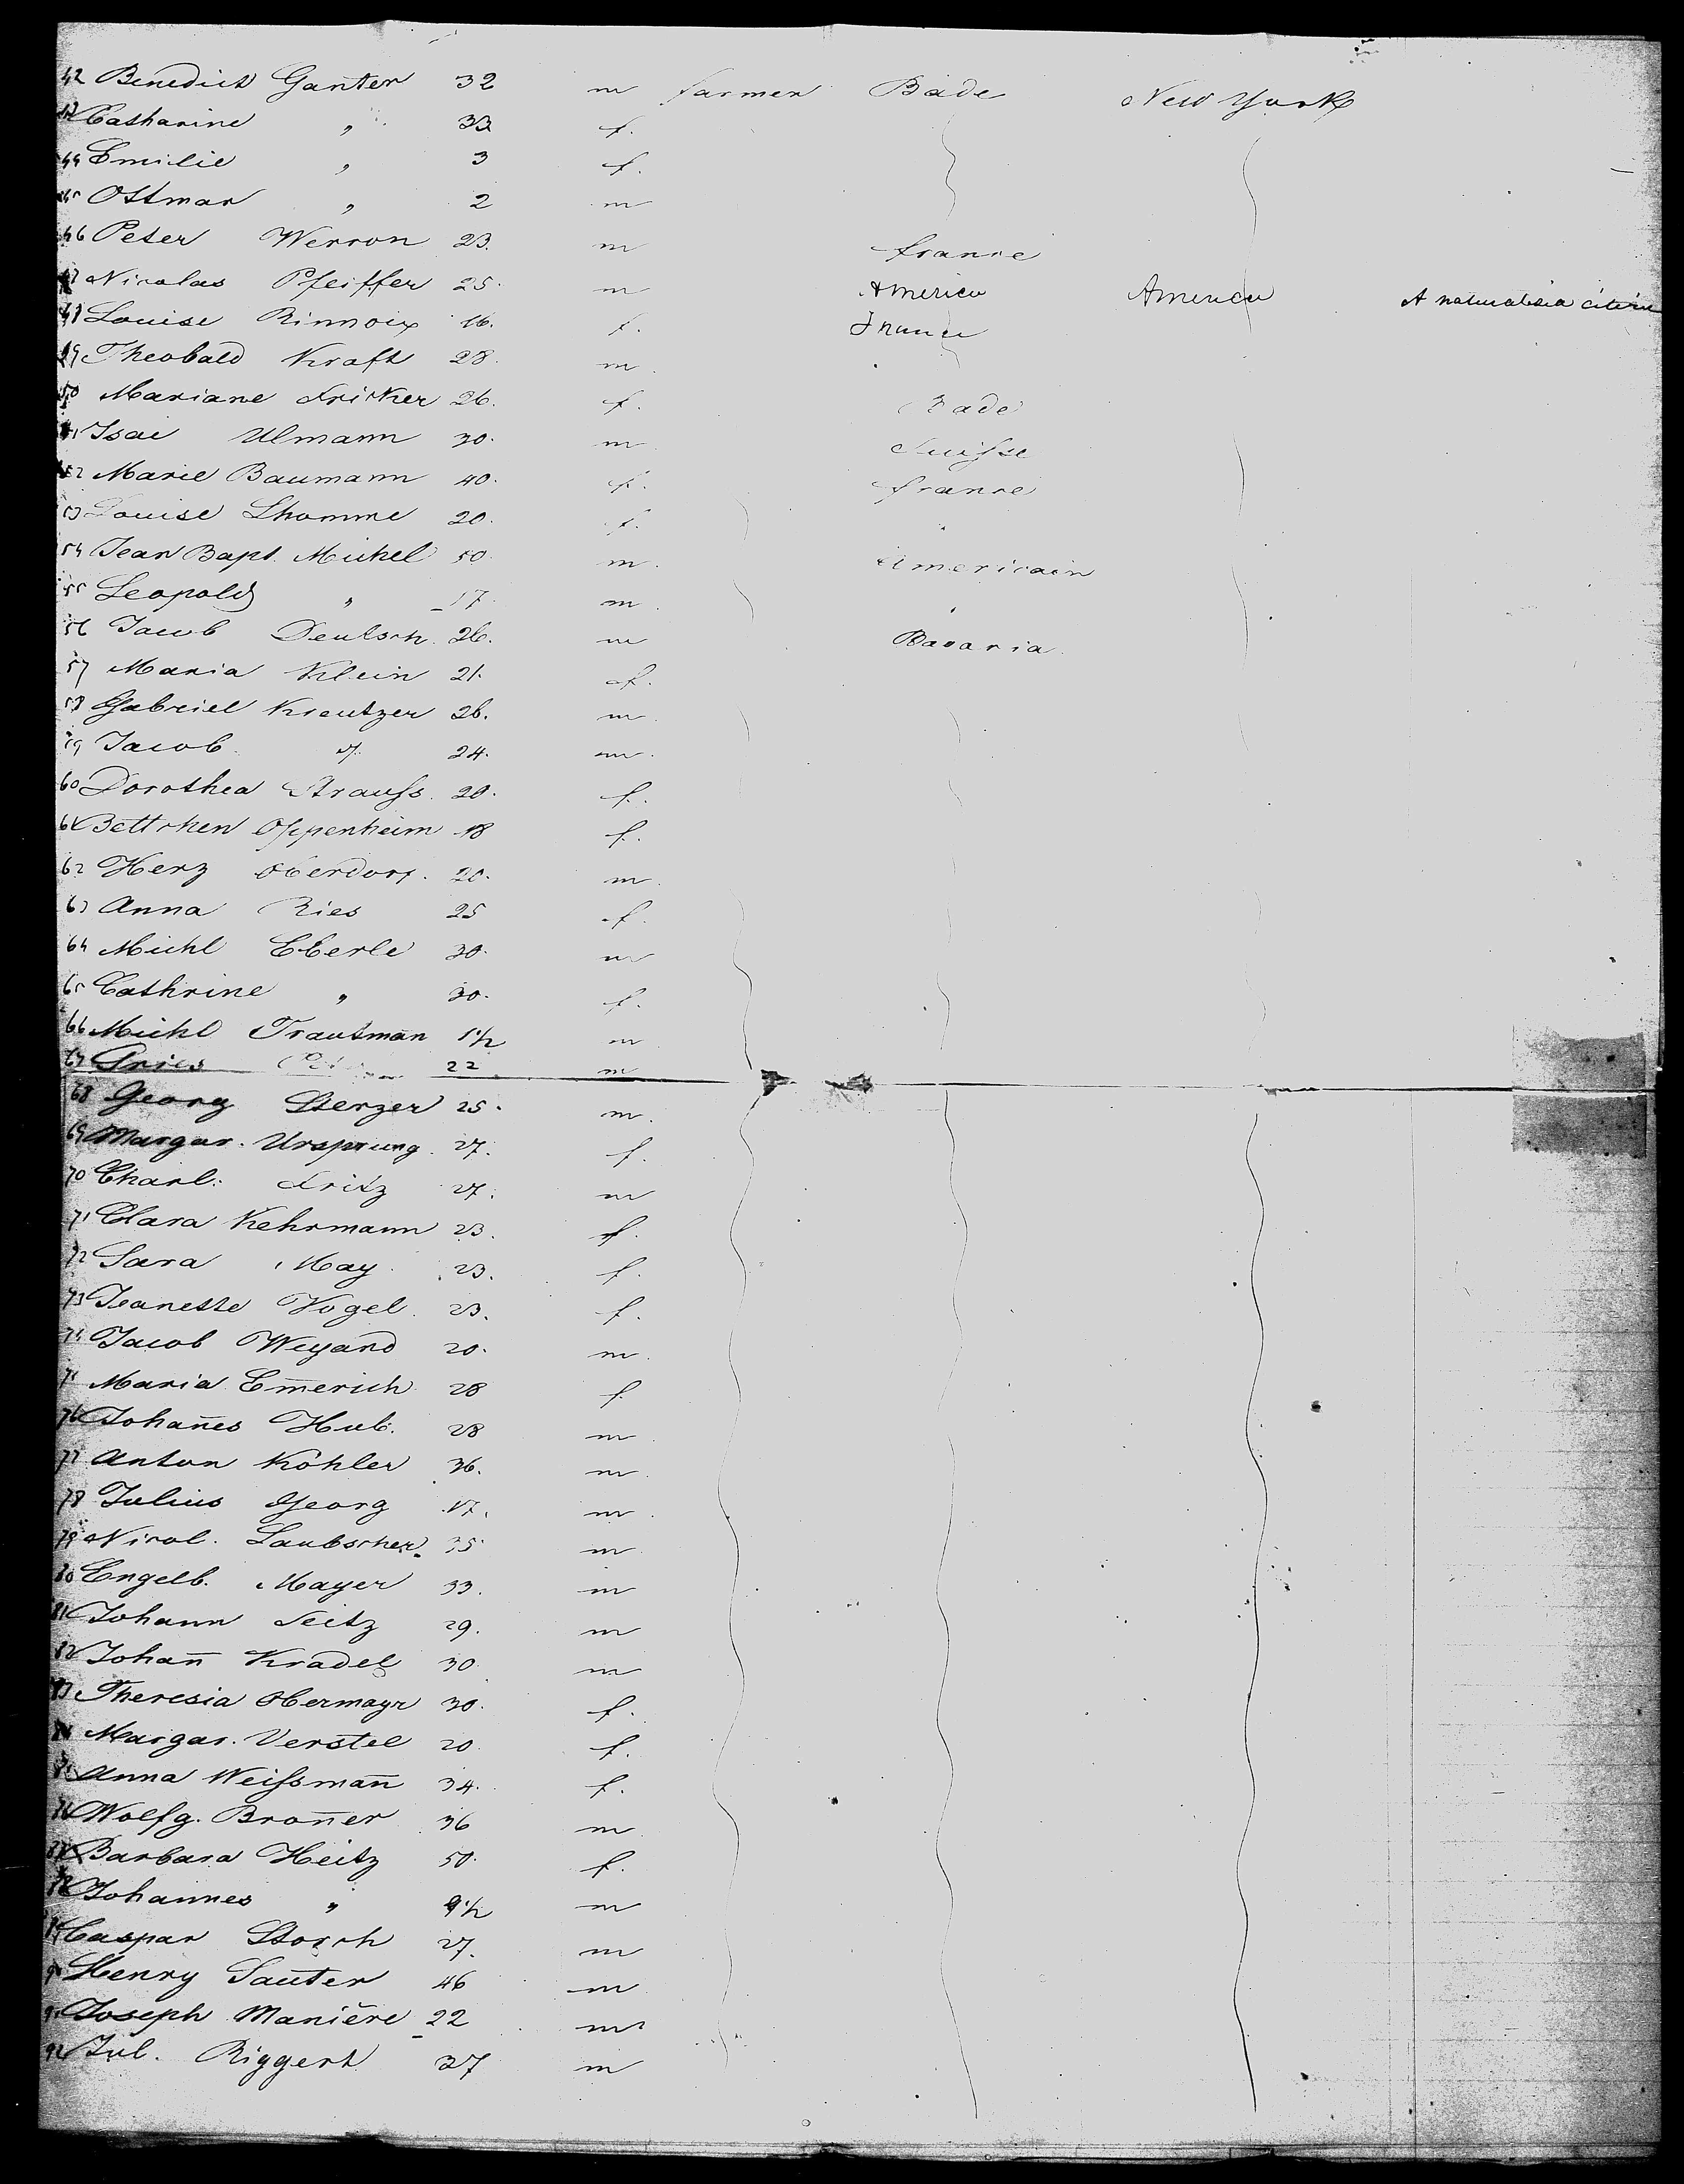 42 Benedict Ganter 32 m farmer Bade New York
43 Catharine " 33 f.
44 Emilie " 3 f.
45 Ottmar " 2 m
46 Peter Werron 23. m france
47 Nicolas Pfeiffer 25. m America America A naturalisia citizen
48 Louise Rinnoix 16. f. France
49 Theobald Kraft 28. m.
50 Mariane Fricker 26. f. Bade
51 Isac Ulmann 30. m Suisse
52 Marie Baumann 40. f. france
53 Louise Lhomme 20. f. "
54 Jean Bapt. Michel 50. m. Americain
55 Leopold " 17. m. "
56 Jacob Deutsch 26. m Bavaria
57 Maria Klein 21. f.
58 Gabriel Kreutzer 26. m.
59 Jacob " 24. m.
60 Dorothea Strauss 20. f.
61 Bettchen Oppenheim 18 f.
62 Herz Oberdorf. 20. m.
63 Anna Ries 25 f.
64 Michl Eberle 30. m
65 Cathrine " 30. f.
66 Michl Trautman̄ 1½ m
67 22 m
68 Georg Sterzer 25. m.
69 Margar. Ursprung. 27. f.
70 Charl. Fritz 27. m
71 Clara Kehrmann 23. f.
72 Sara May. 23. f.
73 Jeanette Vogel. 23. f.
74 Jacob Weyand 20. m.
75 Maria Em̄erich 28 f.
76 Johan̄es Hub. 28 m.
77 Anton Köhler 36. m.
78 Julius Georg 17. m.
79 Nicol. Laubscher 35 m.
80 Engelb. Mayer 33. m
81 Johann Seitz 29. m
82 Johan̄ Kradel 30. m
83 Theresia Obermayr 30. f.
84 Margar. Verstel 20. f.
85 Anna Weissman̄ 34. f.
86 Wolfg. Bron̄er 36 m
87 Barbara Heitz 50. f.
88 Johannes " 9½ m
89 Caspar Storch 27. m
90 Henry Sauter 46 m
91 Joseph Manière 22 m
92 Jul. Riggert 37 m